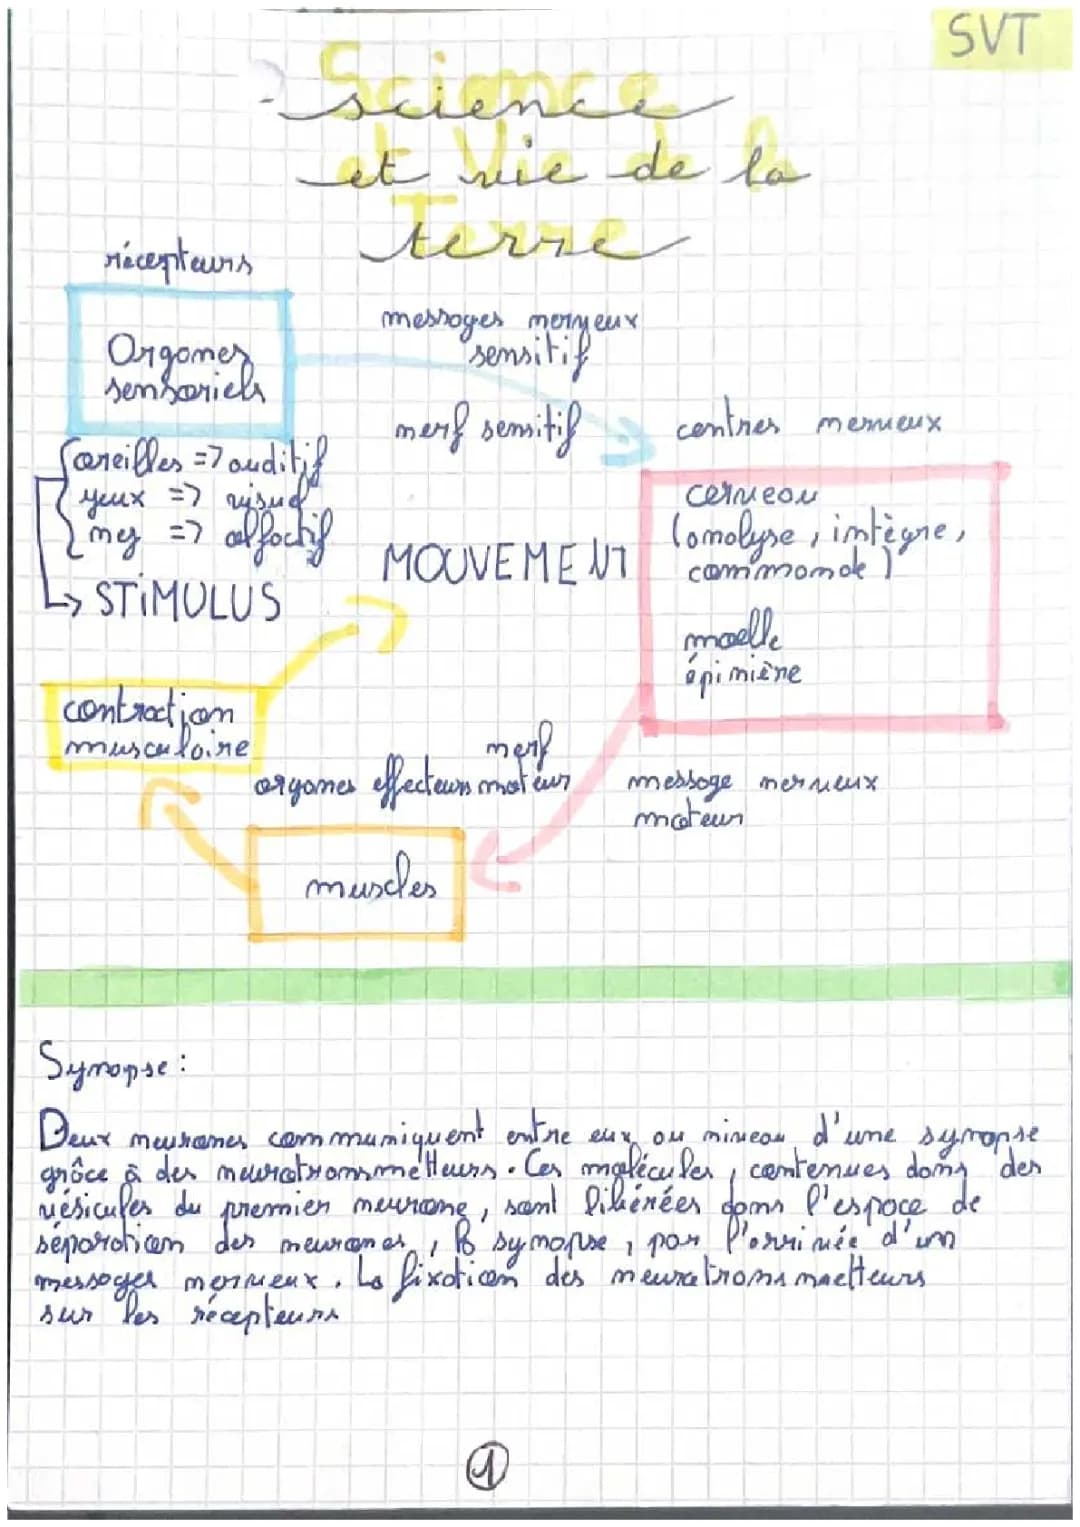 SVT
Science
et Vie de la
Terre
science
et vie de la
terre
récepteurs
Organes
sensoriels
messages nerveux
sensitif
nerf sensitif
centres nerveux
oreilles => auditif
yeux => visuel
nez => olfactif
STIMULUS
MOUVEMENT
cerveau
(analyse, intègre,
commande)
moelle
épinière
contraction
musculaire
nerf
organes effecteurs moteur
message nerveux
moteur
muscles
Synapse :
Deux neurones communiquent entre eux au niveau d'une synapse
grâce à des neurotransmetteurs. Ces molécules, contenues dans des
vésicules du premier neurone, sont libérées dans l'espace de
séparation des neurones, la synapse, par l'arrivée d'un
messages nerveux. La fixation des neurotransmaetteurs
sur les récepteurs
1